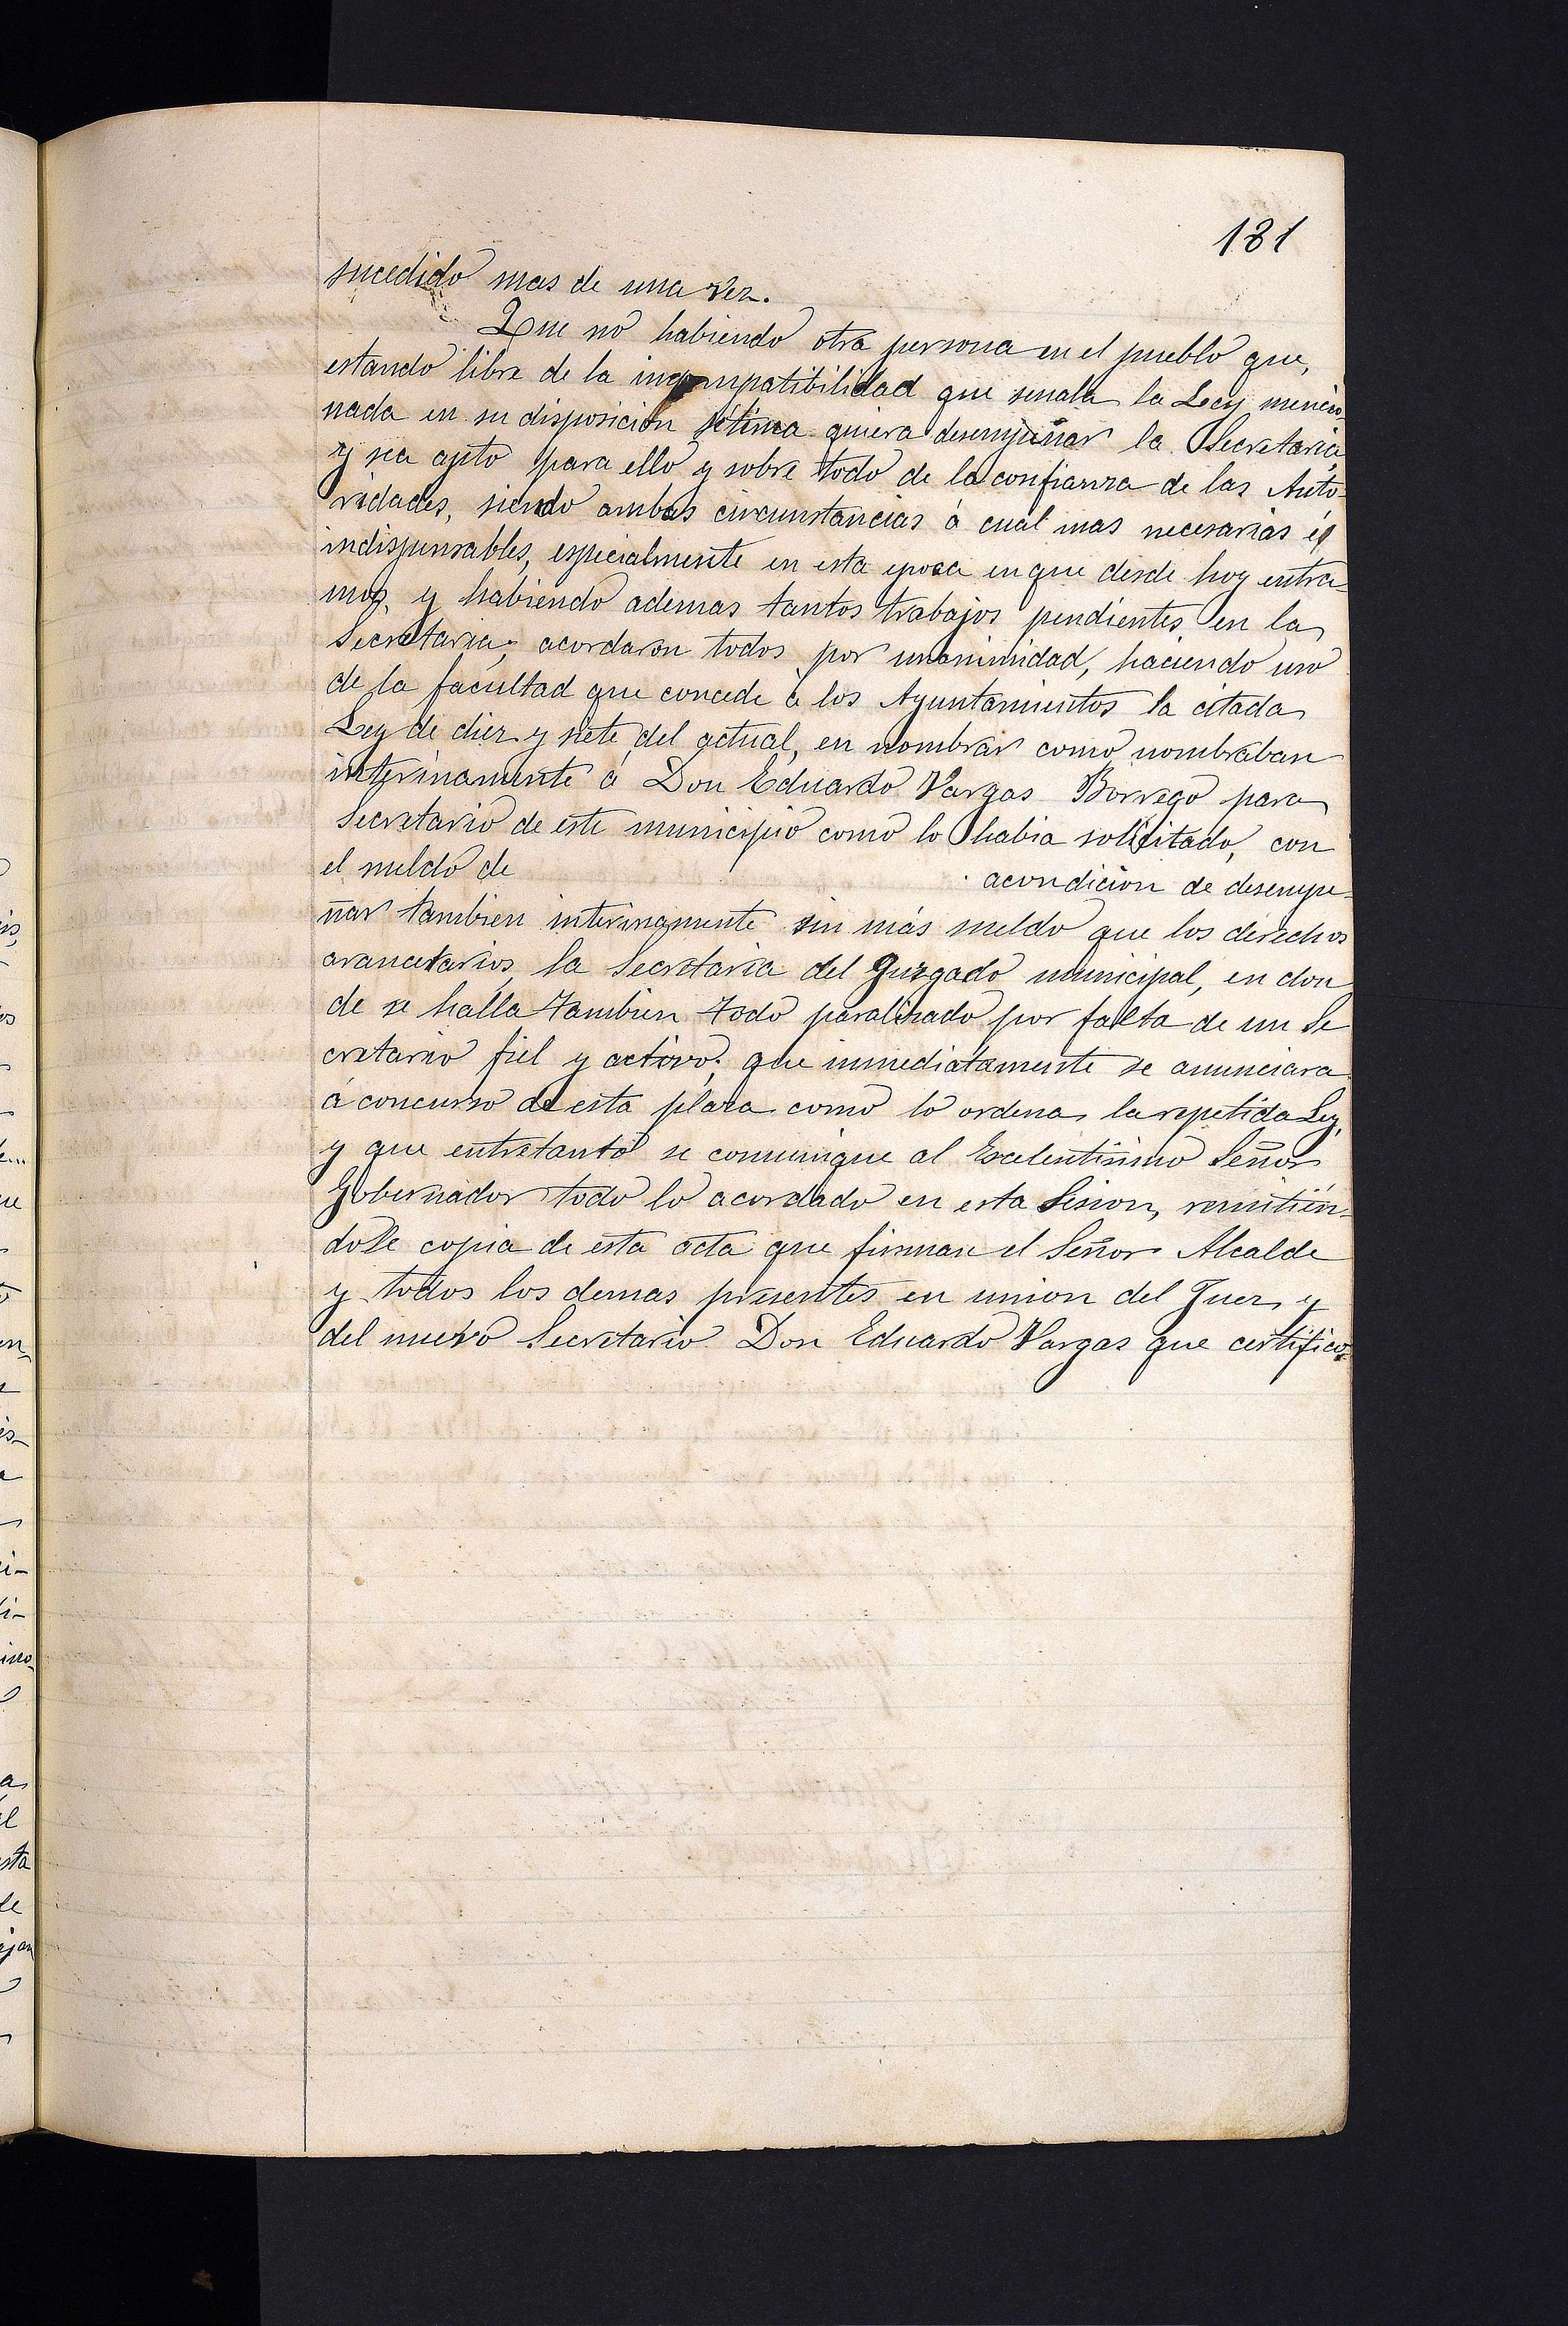 181
sucedido mas de una vez.
Que no habiendo otra persona en el pueblo que,
estando libre de la incompatibilidad que senala la Ley mencio-
nada en su disposición sétima quiera desempeñar la Secretaria,
y sea apto para ello y sobre todo de la confianza de las Auto-
ridades, siendo ambas circunstancias á cual mas necesarias é
indispensables, especialmente en esta epoca en que desde hoy entra-
mos, y habiendo ademas tantos trabajos pendientes en la
Secretaria; acordaron todos por unanimidad, haciendo uso
de la facultad que concede á los Ayuntamientos la citada
Ley de diez y siete del actual, en nombrar como nombraban
interinamente á Don Eduardo Vargas Borrego para
Secretario de este municipio como lo habia solicitado, con
el sueldo de acondicion de desempe-
ñar tambien interinamente sin más sueldo que los derechos
arancelarios, la Secretaria del Juzgado municipal, en don
de se halla tambien todo paralizado por falta de un Se
cretario fiel y activo; que inmediatamente se anunciara
á concurso de esta plaza como lo ordena la repetida Ley,
y que entretanto se comunique al Escelentisimo Señor
Gobernador todo lo acordado en esta Sesion, remitién-
dole copia de esta acta que firman el Señor Alcalde
y todos los demas presentes en union del Juez y
del nuevo Secretario Don Eduardo Vargas que certifico.